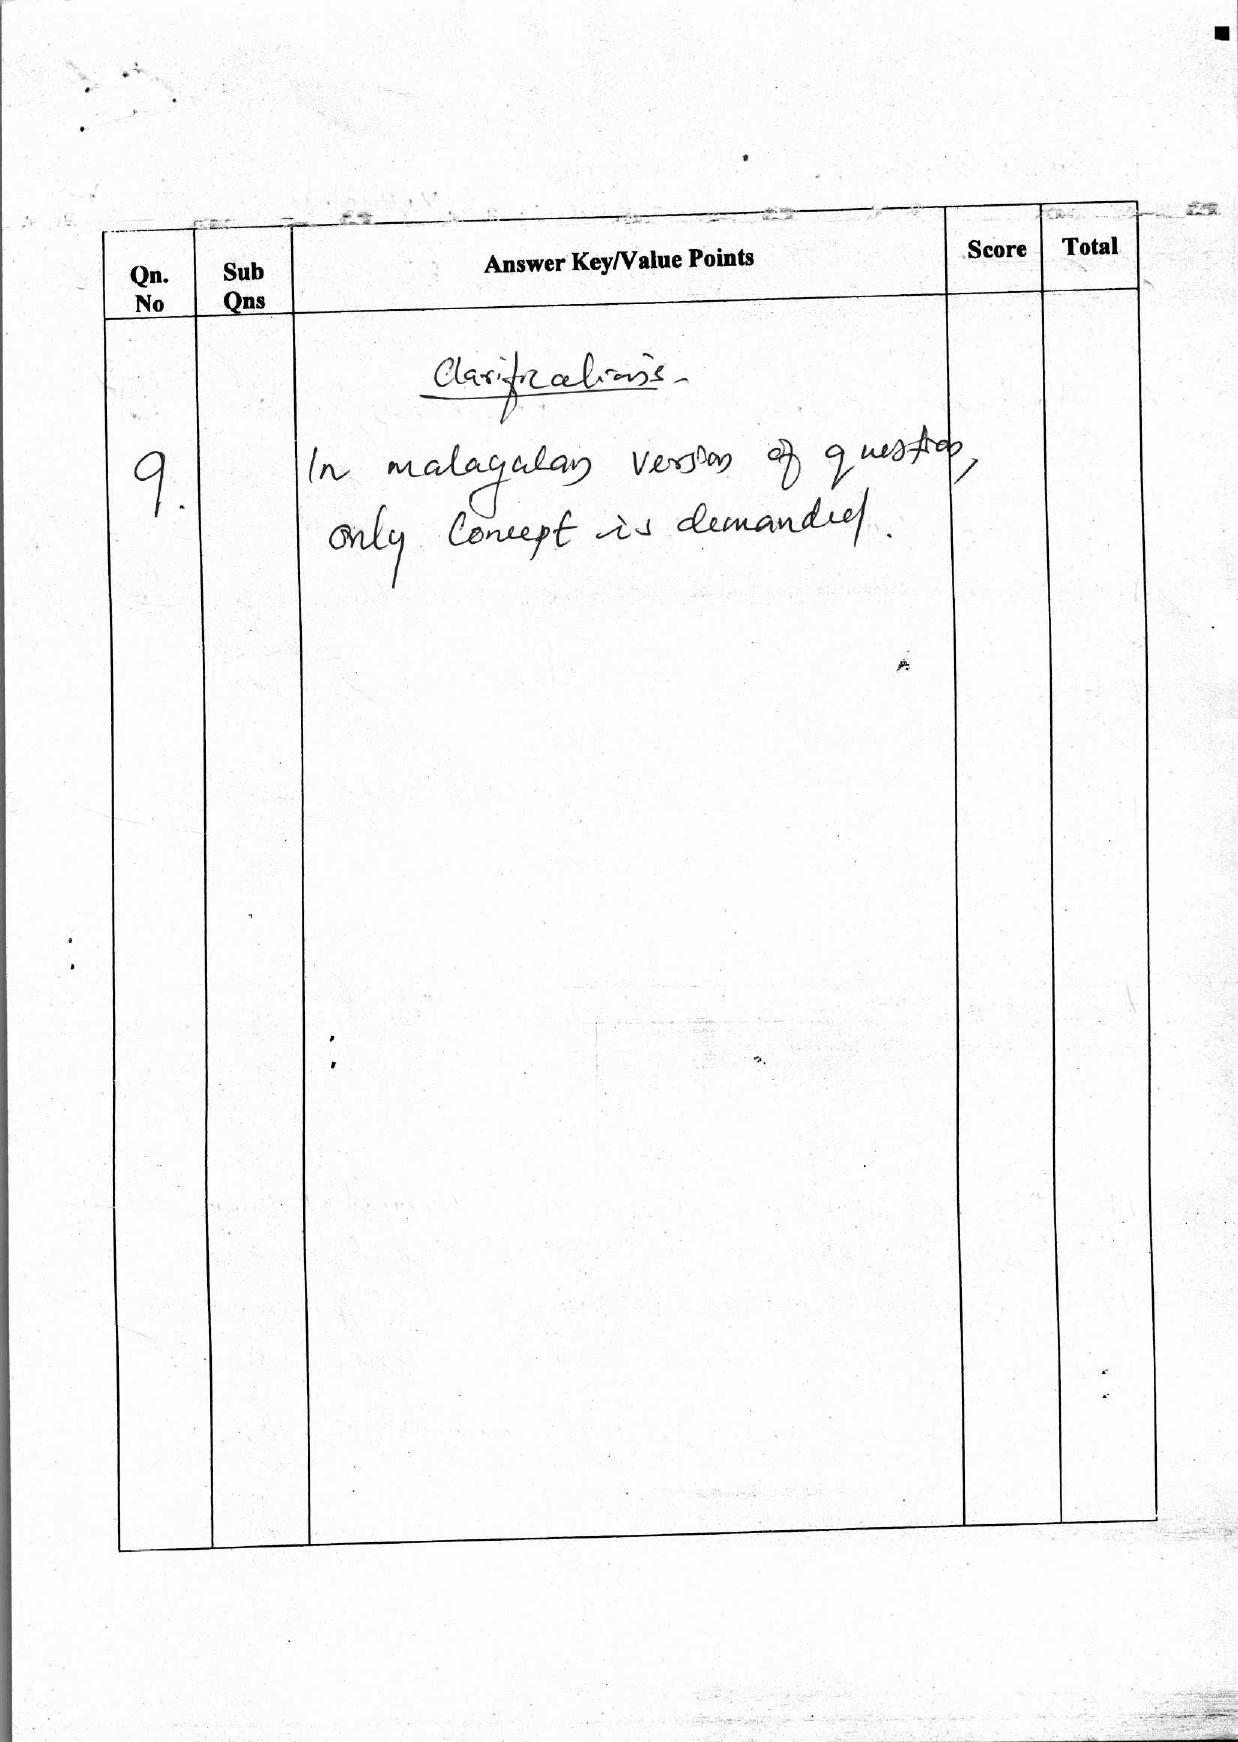 Qn. No
Sub Qns
Answer Key/Value Points
Score
Total
Clarifications-
9.
In malayalam version of question,
only Concept is demanded.